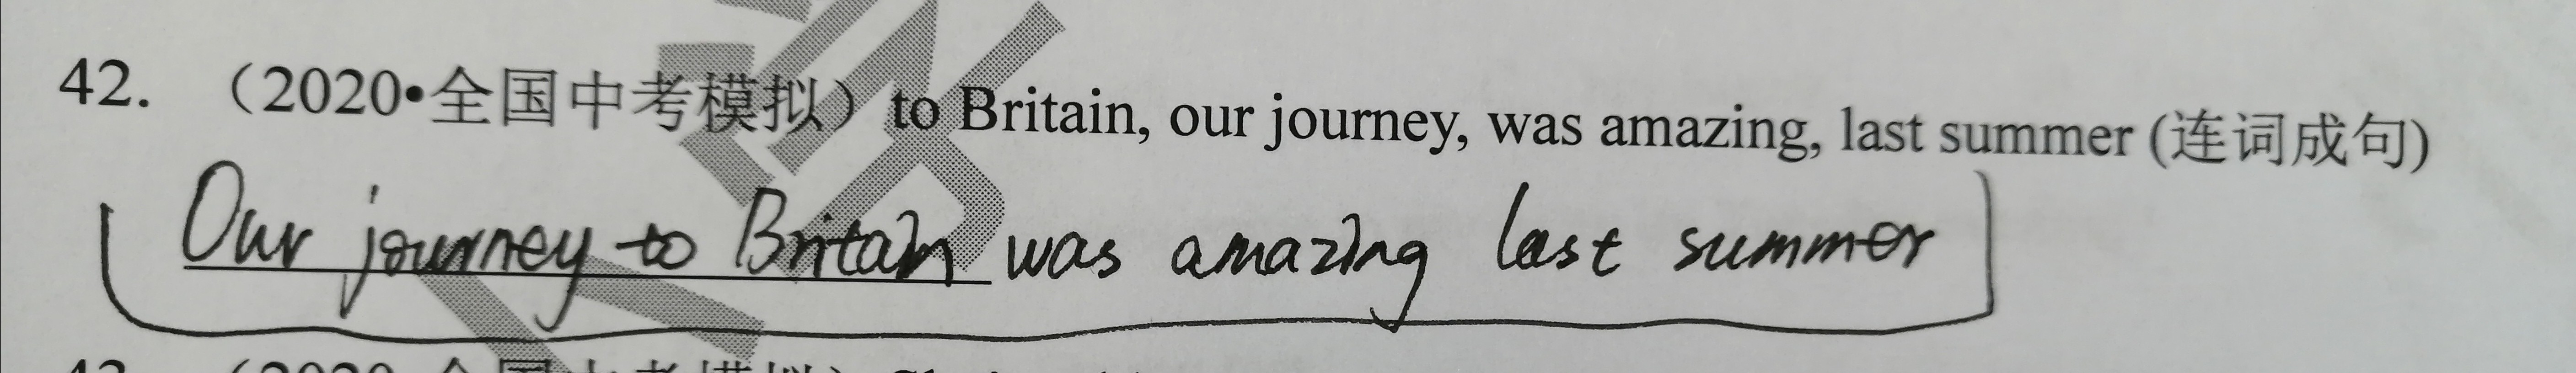 42. （2020•全国中考模拟）to Britain, our journey, was amazing, last summer (连词成句)
Our journey to Britain was amazing last summer